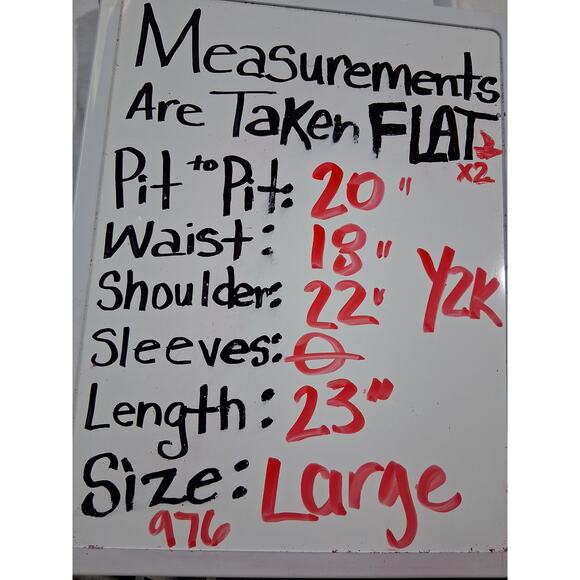 Measurements
Are Taken FLAT
x2
Pit to Pit: 20"
Waist: 18"
Shoulder: 22"
Y2K
Sleeves: 0
Length: 23"
Size: Large
976